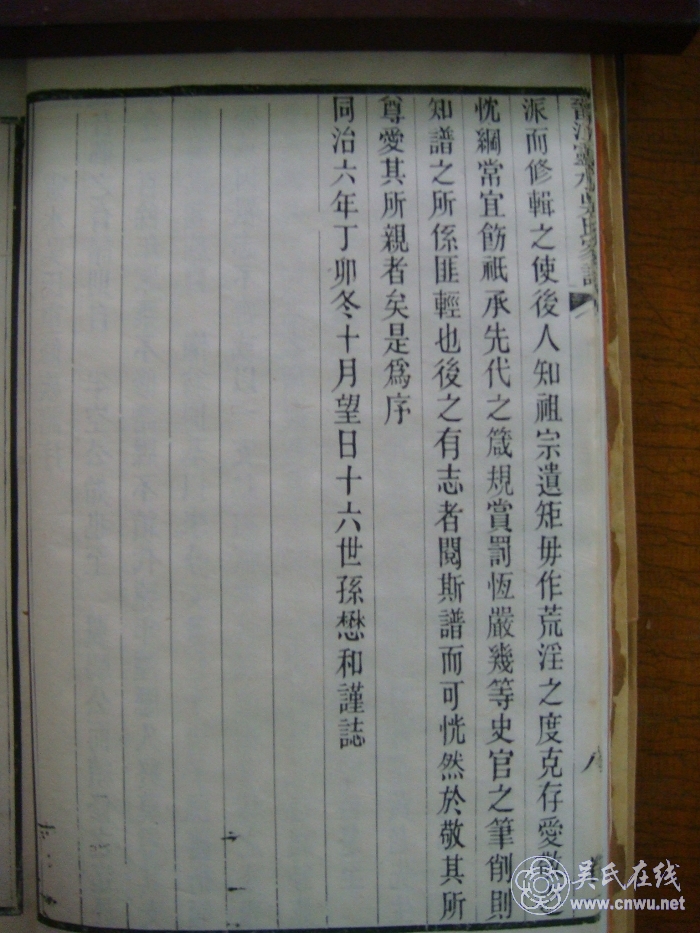 晉江靈水吳氏家譜
八
派而修輯之使後人知祖宗遺矩毋作荒淫之度克存愛敬之
忱綱常宜飭祇承先代之箴規賞罰恆嚴幾等史官之筆削則
知譜之所係匪輕也後之有志者閱斯譜而可恍然於敬其所
尊愛其所親者矣是爲序
同治六年丁卯冬十月望日十六世孫懋和謹誌
吴氏在线
www.cnwu.net